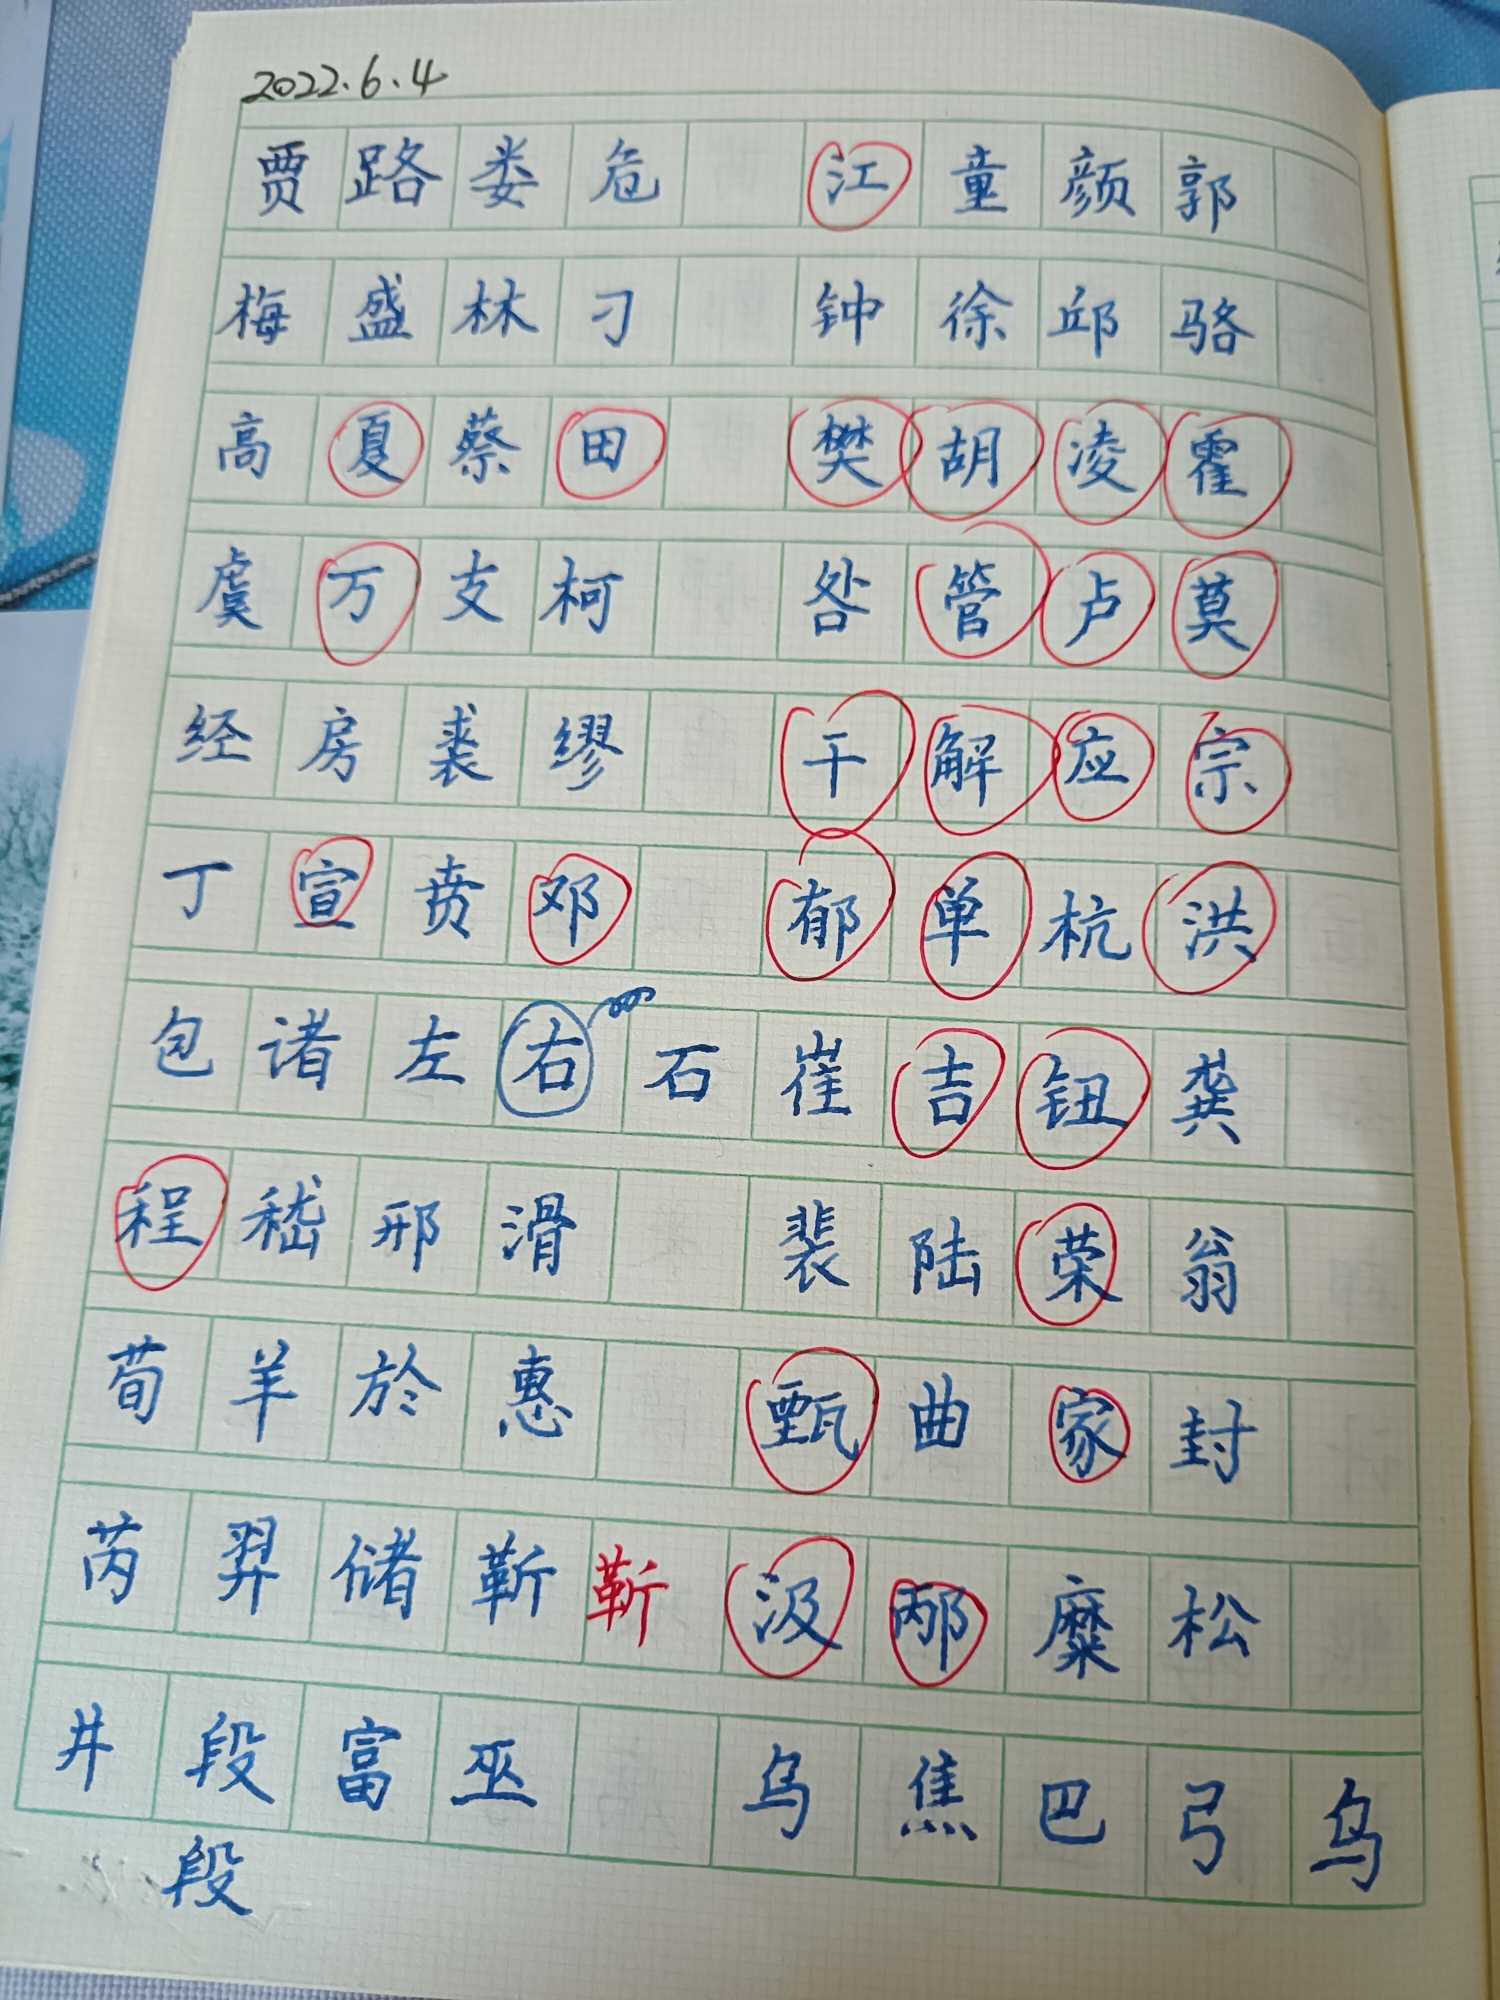 2022.6.4
贾路娄危 江童颜郭
梅盛林刁 钟徐邱骆
高夏蔡田 樊胡凌霍
虞万支柯 昝管卢莫
经房裘缪 干解应宗
丁宣贲邓 郁单杭洪
包诸左右石崔吉钮龚
程嵇邢滑 裴陆荣翁
荀羊於惠 甄曲家封
芮羿储靳靳汲邴糜松
井段富巫 乌焦巴弓乌
段